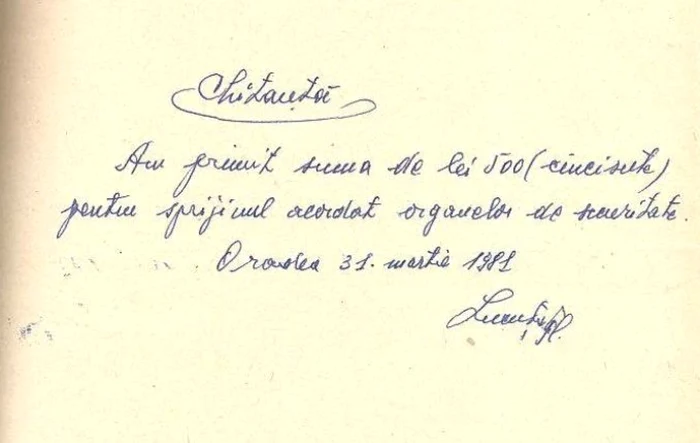 Chitanță
Am primit suma de lei 500 (cincisute)
pentru sprijinul acordat organelor de securitate.
Oradea 31. martie 1981